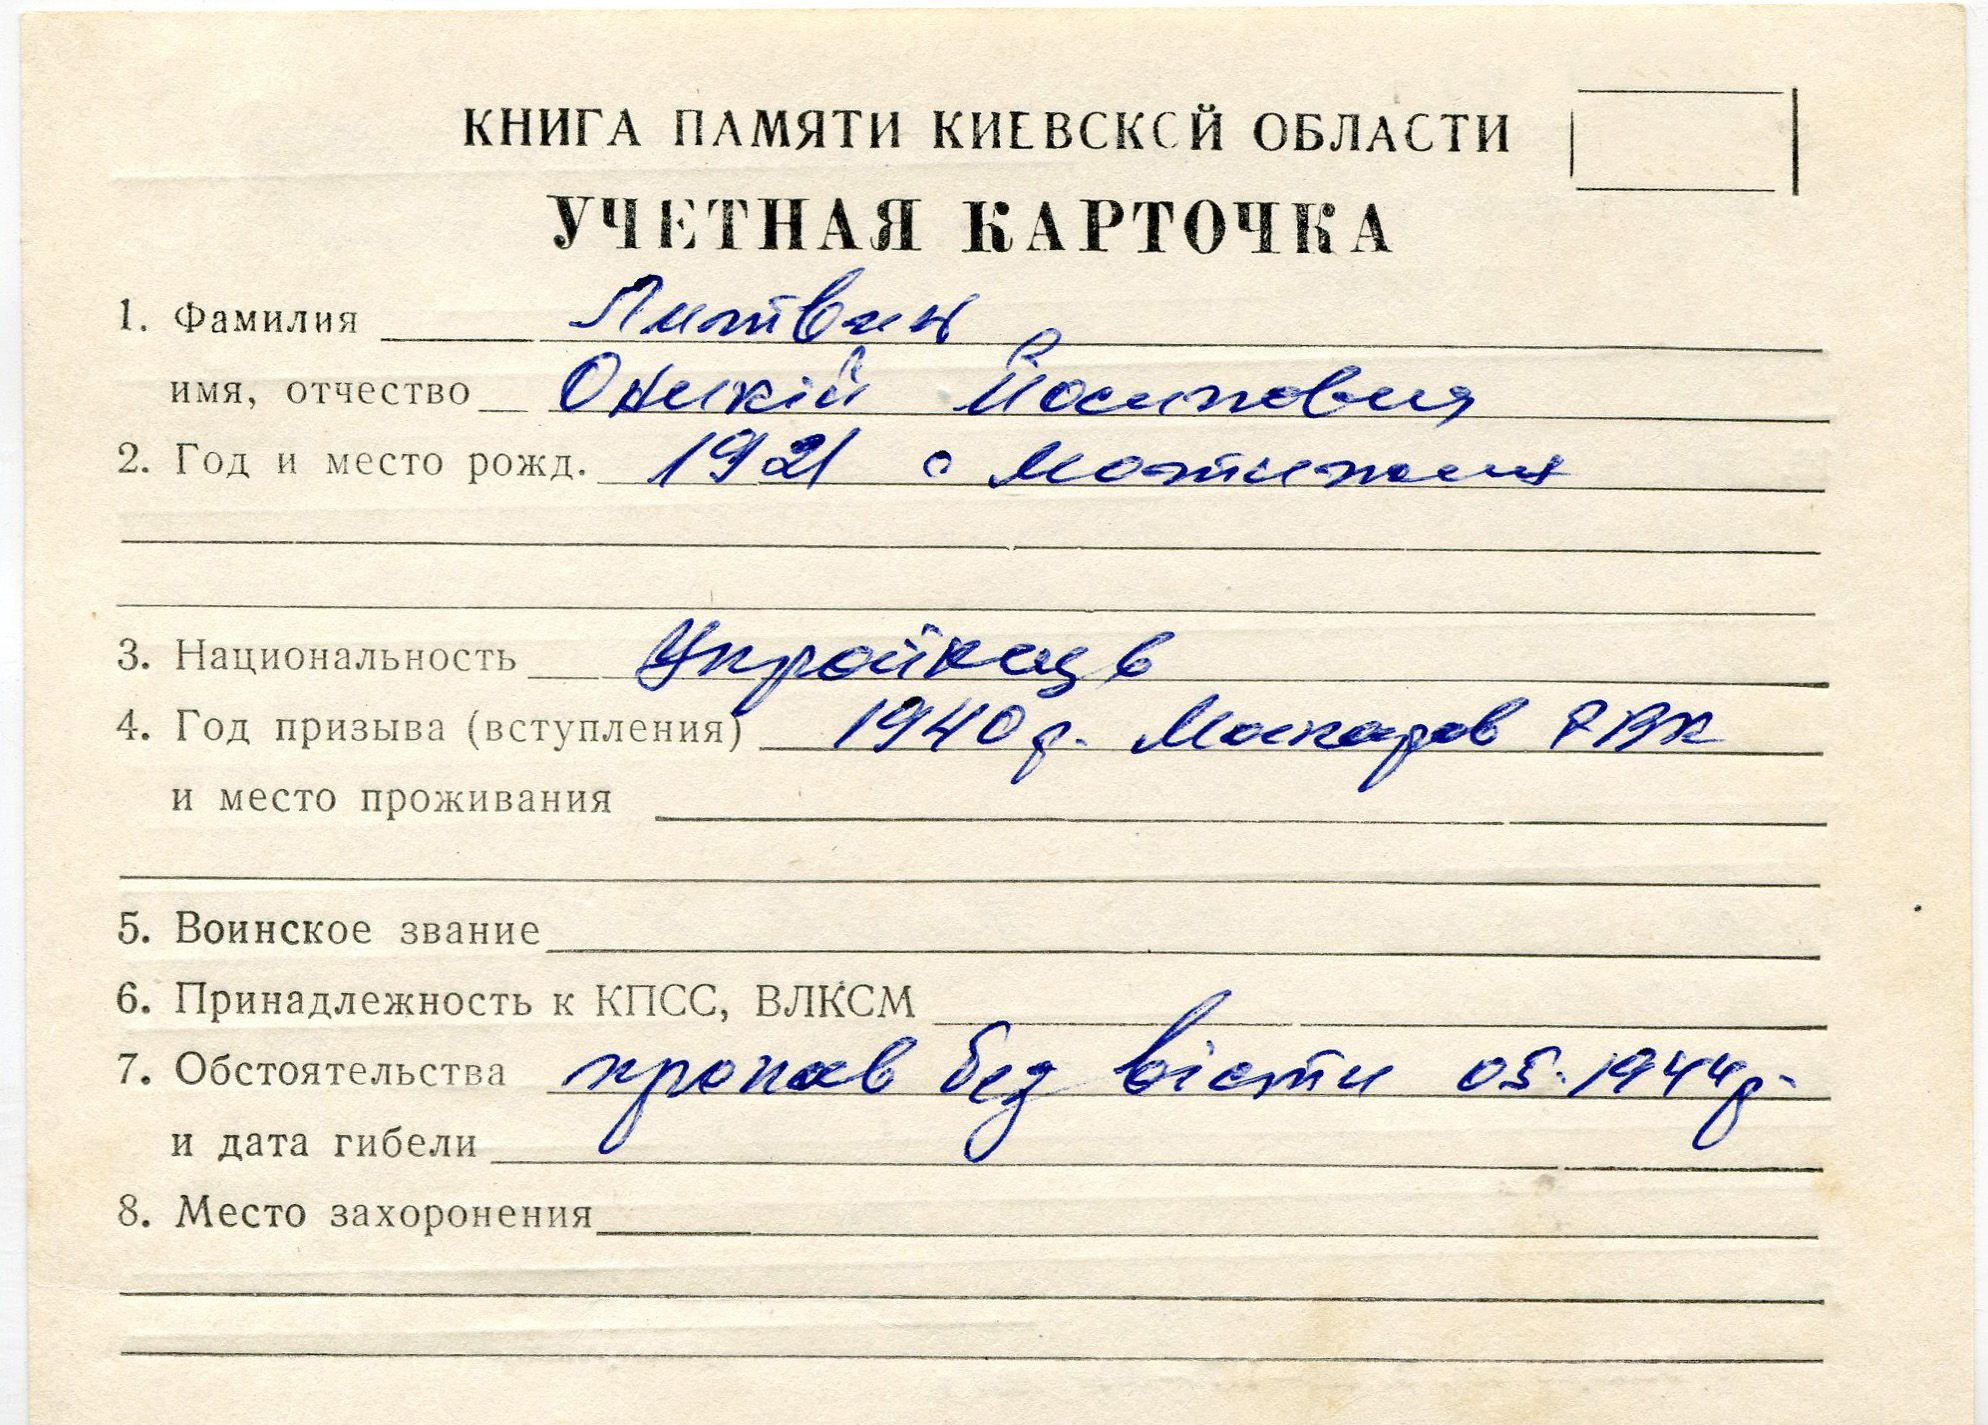 КНИГА ПАМЯТИ КИЕВСКСЙ ОБЛАСТИ
УЧЕТНАЯ КАРТОЧКА
1. Фамилия Литвин
имя, отчество Йосипович
2. Год и место рожд. 1921 с
3. Национальность Українець
4. Год призыва (вступления) 1940 р. Макаров РВК
и место проживания
5. Воинское звание
6. Принадлежность к КПСС, ВЛКСМ
7. Обстоятельства пропав без вісти 05.1944 р.
и дата гибели
8. Место захоронения